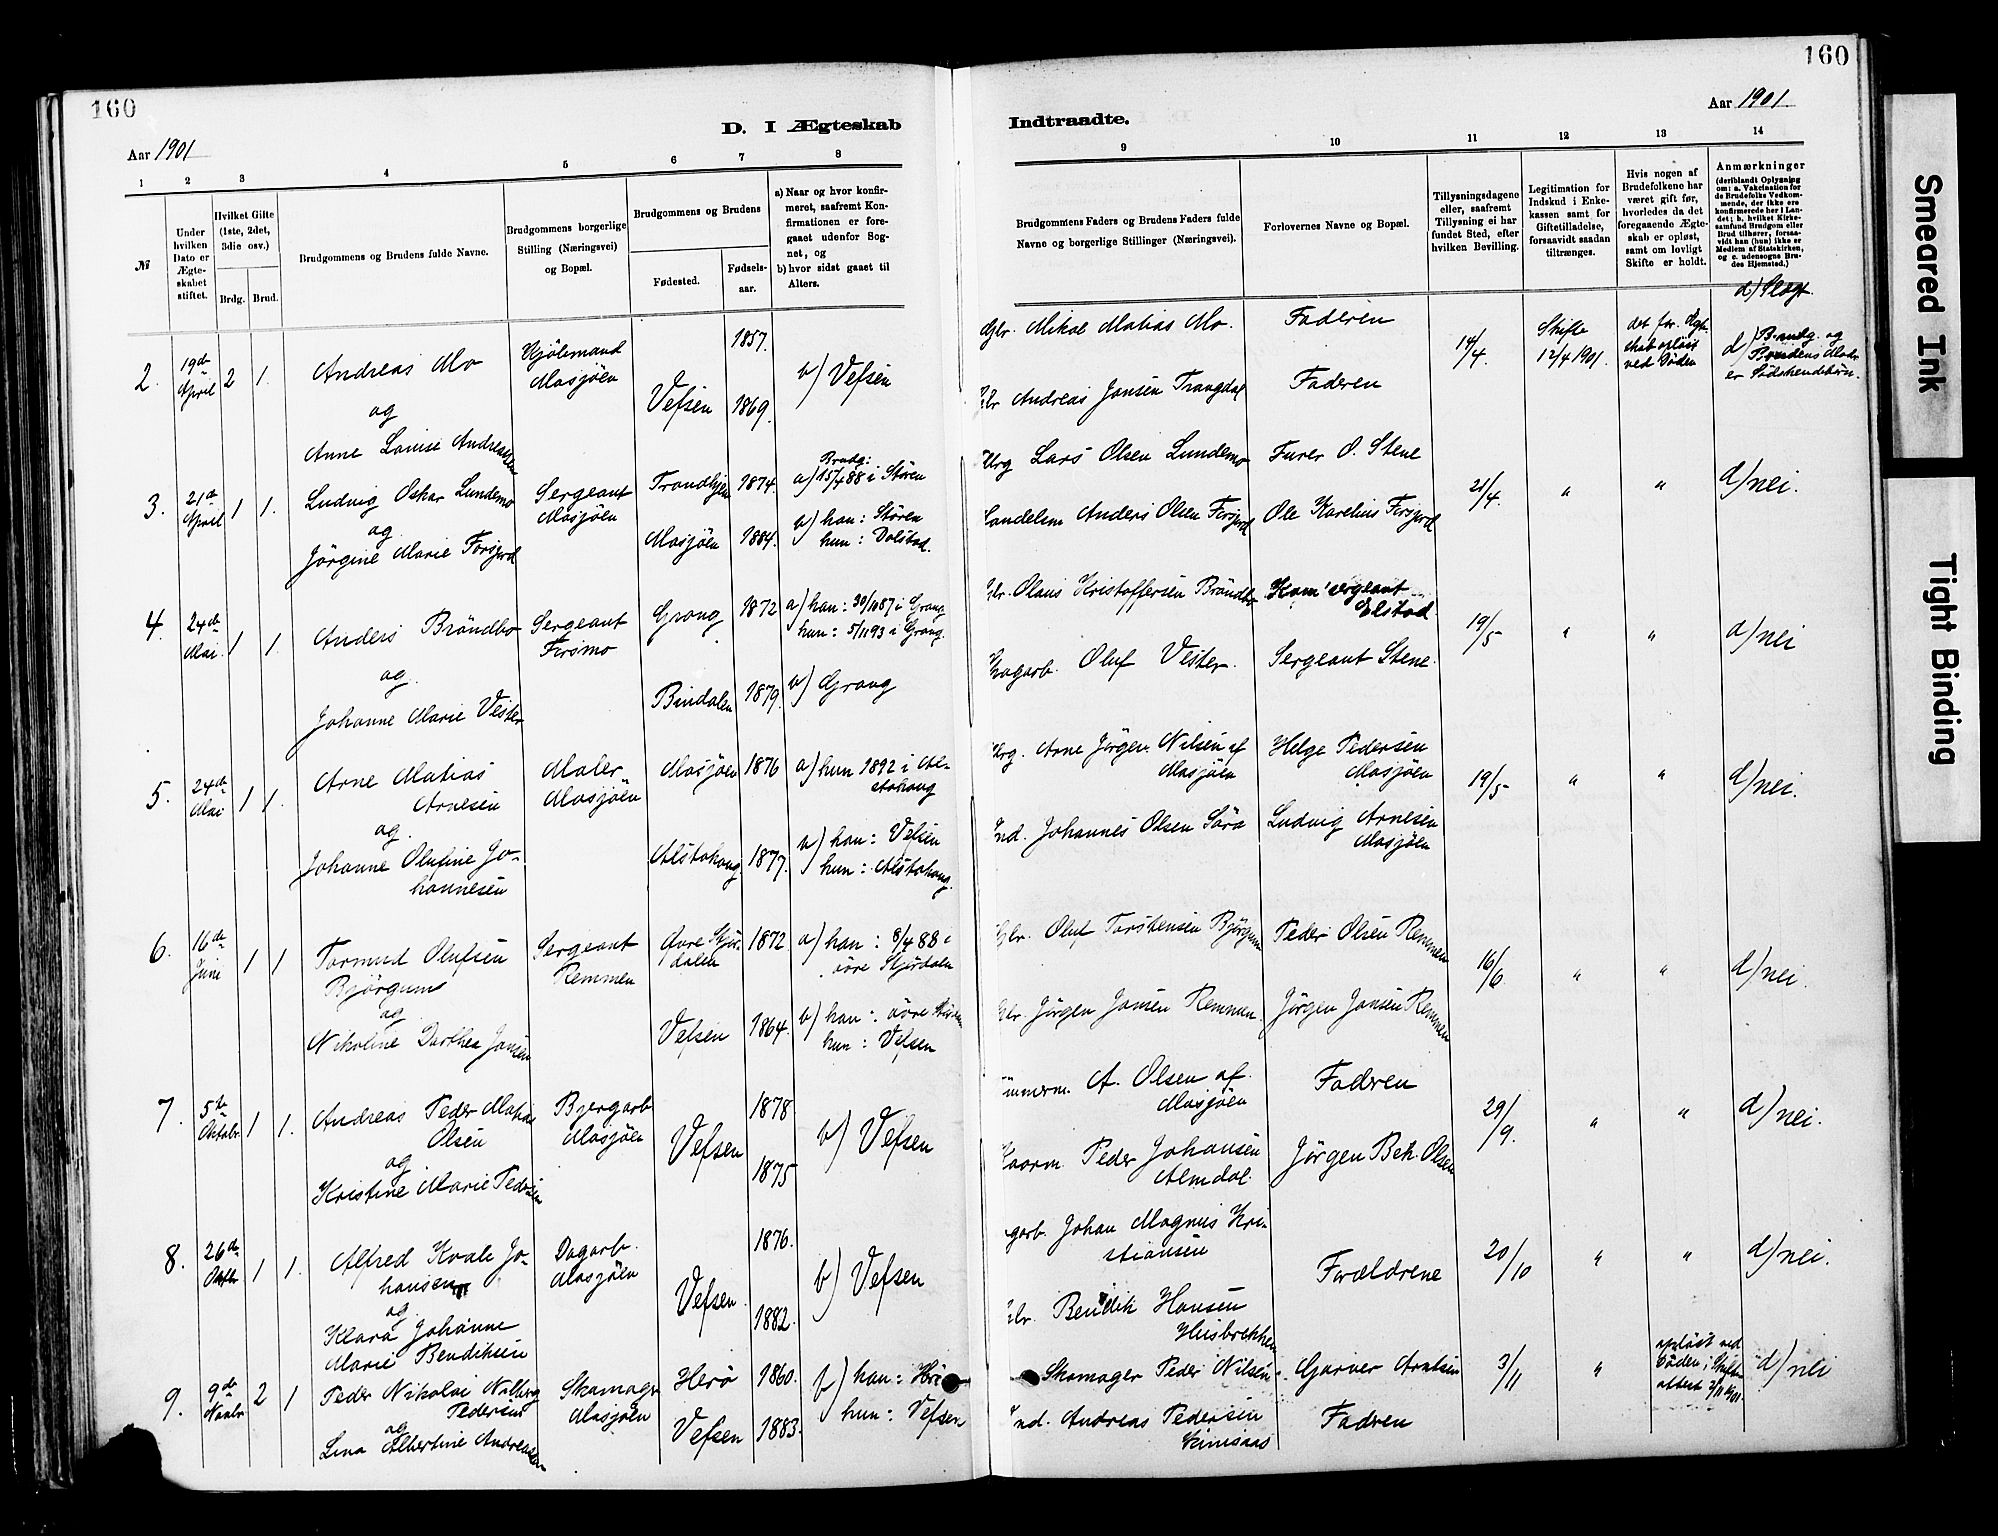 160
D. I Ægteskab
Aar 1901
1 2 3 4 5 6 7 8
№
Under hvilken Dato er Ægteskabet stiftet.
Hvilket Gifte (1ste, 2det, 3die osv.)
Brdg. Brud.
Brudgommens og Brudens fulde Navne.
Brudgommens borgerlige Stilling (Næringsvei) og Bopæl.
Brudgommens og Brudens
Fødested. Fødsels-aar.
a) Naar og hvor konfir-
meret, saafremt Kon-
firmationen er fore-
gaaet udenfor Sog-
net, og
b) hvor sidst gaaet til
Alters.
2. 19de April 2 1. Andreas Mo
og
Anne Louise Andreassen
Kjöbmand
Mosjöen
Vefsen
1857.
1869.
b) Vefsen
3. 21de April 1 1. Ludvig Oskar Lundemo
og
Jörgine Marie Forsjord
Sergeant
Mosjöen
Trondhjem 1874.
Mosjöen 1884.
Brudg:
a) 15/4 88 i Stören
b) han: Stören
hun: Dolstad.
4. 24de Mai. 1 1. Anders Bröndbo
og
Johanne Marie Vester
Sergeant
Forsmo
Grong 1872
Bindalen 1879.
a) han: 30/10 87 i Grong
hun: 5/11 93 i Grong.
b) Grong
5. 24de Mai 1 1. Arne Matias
Arnesen
og
Johanne Olufine Jo-
hannesen
Maler
Mosjöen
Mosjöen 1876
Alstahaug 1877.
a) hun 1892 i Al-
stahaug
b) han: Vefsen
hun: Alstahaug.
6. 16de Juni 1 1 Tormud Olufsen
Björgum
og
Nikoline Dorthea Jonsen
Sergeant
Remmen
Övre Stjör-
dalen 1872.
Vefsen 1864.
a) han: 8/4 88 i
övre Stjördalen
b) han: övre
hun: Vefsen
7. 5te Oktobr. 1 1. Andreas Peder Matias
Olsen
og
Kristine Marie Pedersen
Bjergarb.
Mosjöen
Vefsen
1878
1875
b) Vefsen
8. 26de Oktbr 1 1. Alfred Kvale Jo-
hansen
og
Klara Johanne
Marie Bendiksen
Dagarb.
Mosjöen
Vefsen.
1876.
1882.
b) Vefsen
9. 9de Novbr 2 1 Peder Nikolai
Pedersen
og
Lina Albertine Andreassen
Skomager
Mosjöen
Herö 1860.
Vefsen 1883.
b) han: Herö
hun: Vefsen
160
Indtraadte.
Aar 1901.
9 10 11 12 13 14
Brudgommens Faders og Brudens Faders fulde
Navne og borgerlige Stillinger (Næringsvei).
Forlovernes Navne og Bopæl.
Tillysningsdagene
eller, saafremt
Tillysning ei har
fundet Sted, efter
hvilken Bevilling.
Legitimation for
Indskud i Enke-
kassen samt for
Giftetilladelse,
forsaavidt saadan
tiltrænges.
Hvis nogen af
Brudefolkene har
været gift før,
hvorledes da det
foregaaende Ægte-
skab er opløst,
samt om lovligt
Skifte er holdt.
Anmærkninger
(deriblandt Oplysning
om: a. Vakcination for
de Brudefolks Vedkom-
mende, der ikke ere
konfirmerede her i Lan-
det; b. hvilket Kirke-
samfund Brudgom eller
Brud tilhører, forsaa-
vidt han (hun) ikke er
Medlem af Statskirken,
og c. udensogns Bru-
des Hjemsted.)
d) Slægt.
Gbr. Mikal Matias Mo. Faderen
Andreas Jonsen Trangdal Faderen
14/4. Skifte
12/4 1901.
det for. Ægt-
skab opløst
ved Döden
d) Brudg. og
Brudens Moder
er Södskendebörn.
Lars Olsen Lundemo Furer O. Stene
Handelsm Anders Olsen Forsjord Ole Karelius Forsjord
21/4. " " d) nei.
Olaus Kristoffersen Bröndbo Kom'sergeant
Elstad
Dagarb. Oluf Vester. Sergeant Stene.
19/5 " " d) nei
Arne Jörgen Nilsen af
Mosjöen
Helge Pedersen
Mosjöen
Ind. Johannes Olsen Ludvig Arnesen
Mosjöen
19/5 " " d) nei.
Gbr. Oluf Torstensen Björgum Peder Olsen Remmen
Gbr. Jörgen Jonsen Remmen. Jörgen Jonsen Remmen
16/6 " " d) nei.
Tömmerm. A. Olsen af
Mosjöen
Fadren
Peder Johansen
Almdal.
Jörgen Bek. Olsen
29/9. " " d) nei.
Dagarb. Johan Magnus Kri-
stiansen
Gbr. Bendik Hansen
Husbrekken
Forældrene
20/10 " " d) nei.
Skomager Peder Nilsen Garver Arntsen
Ind. Andreas Pedersen
Fadren
3/11 " oplöst ved
Döden; Skifte-
attest d) nei
Smeared Ink
Tight Binding